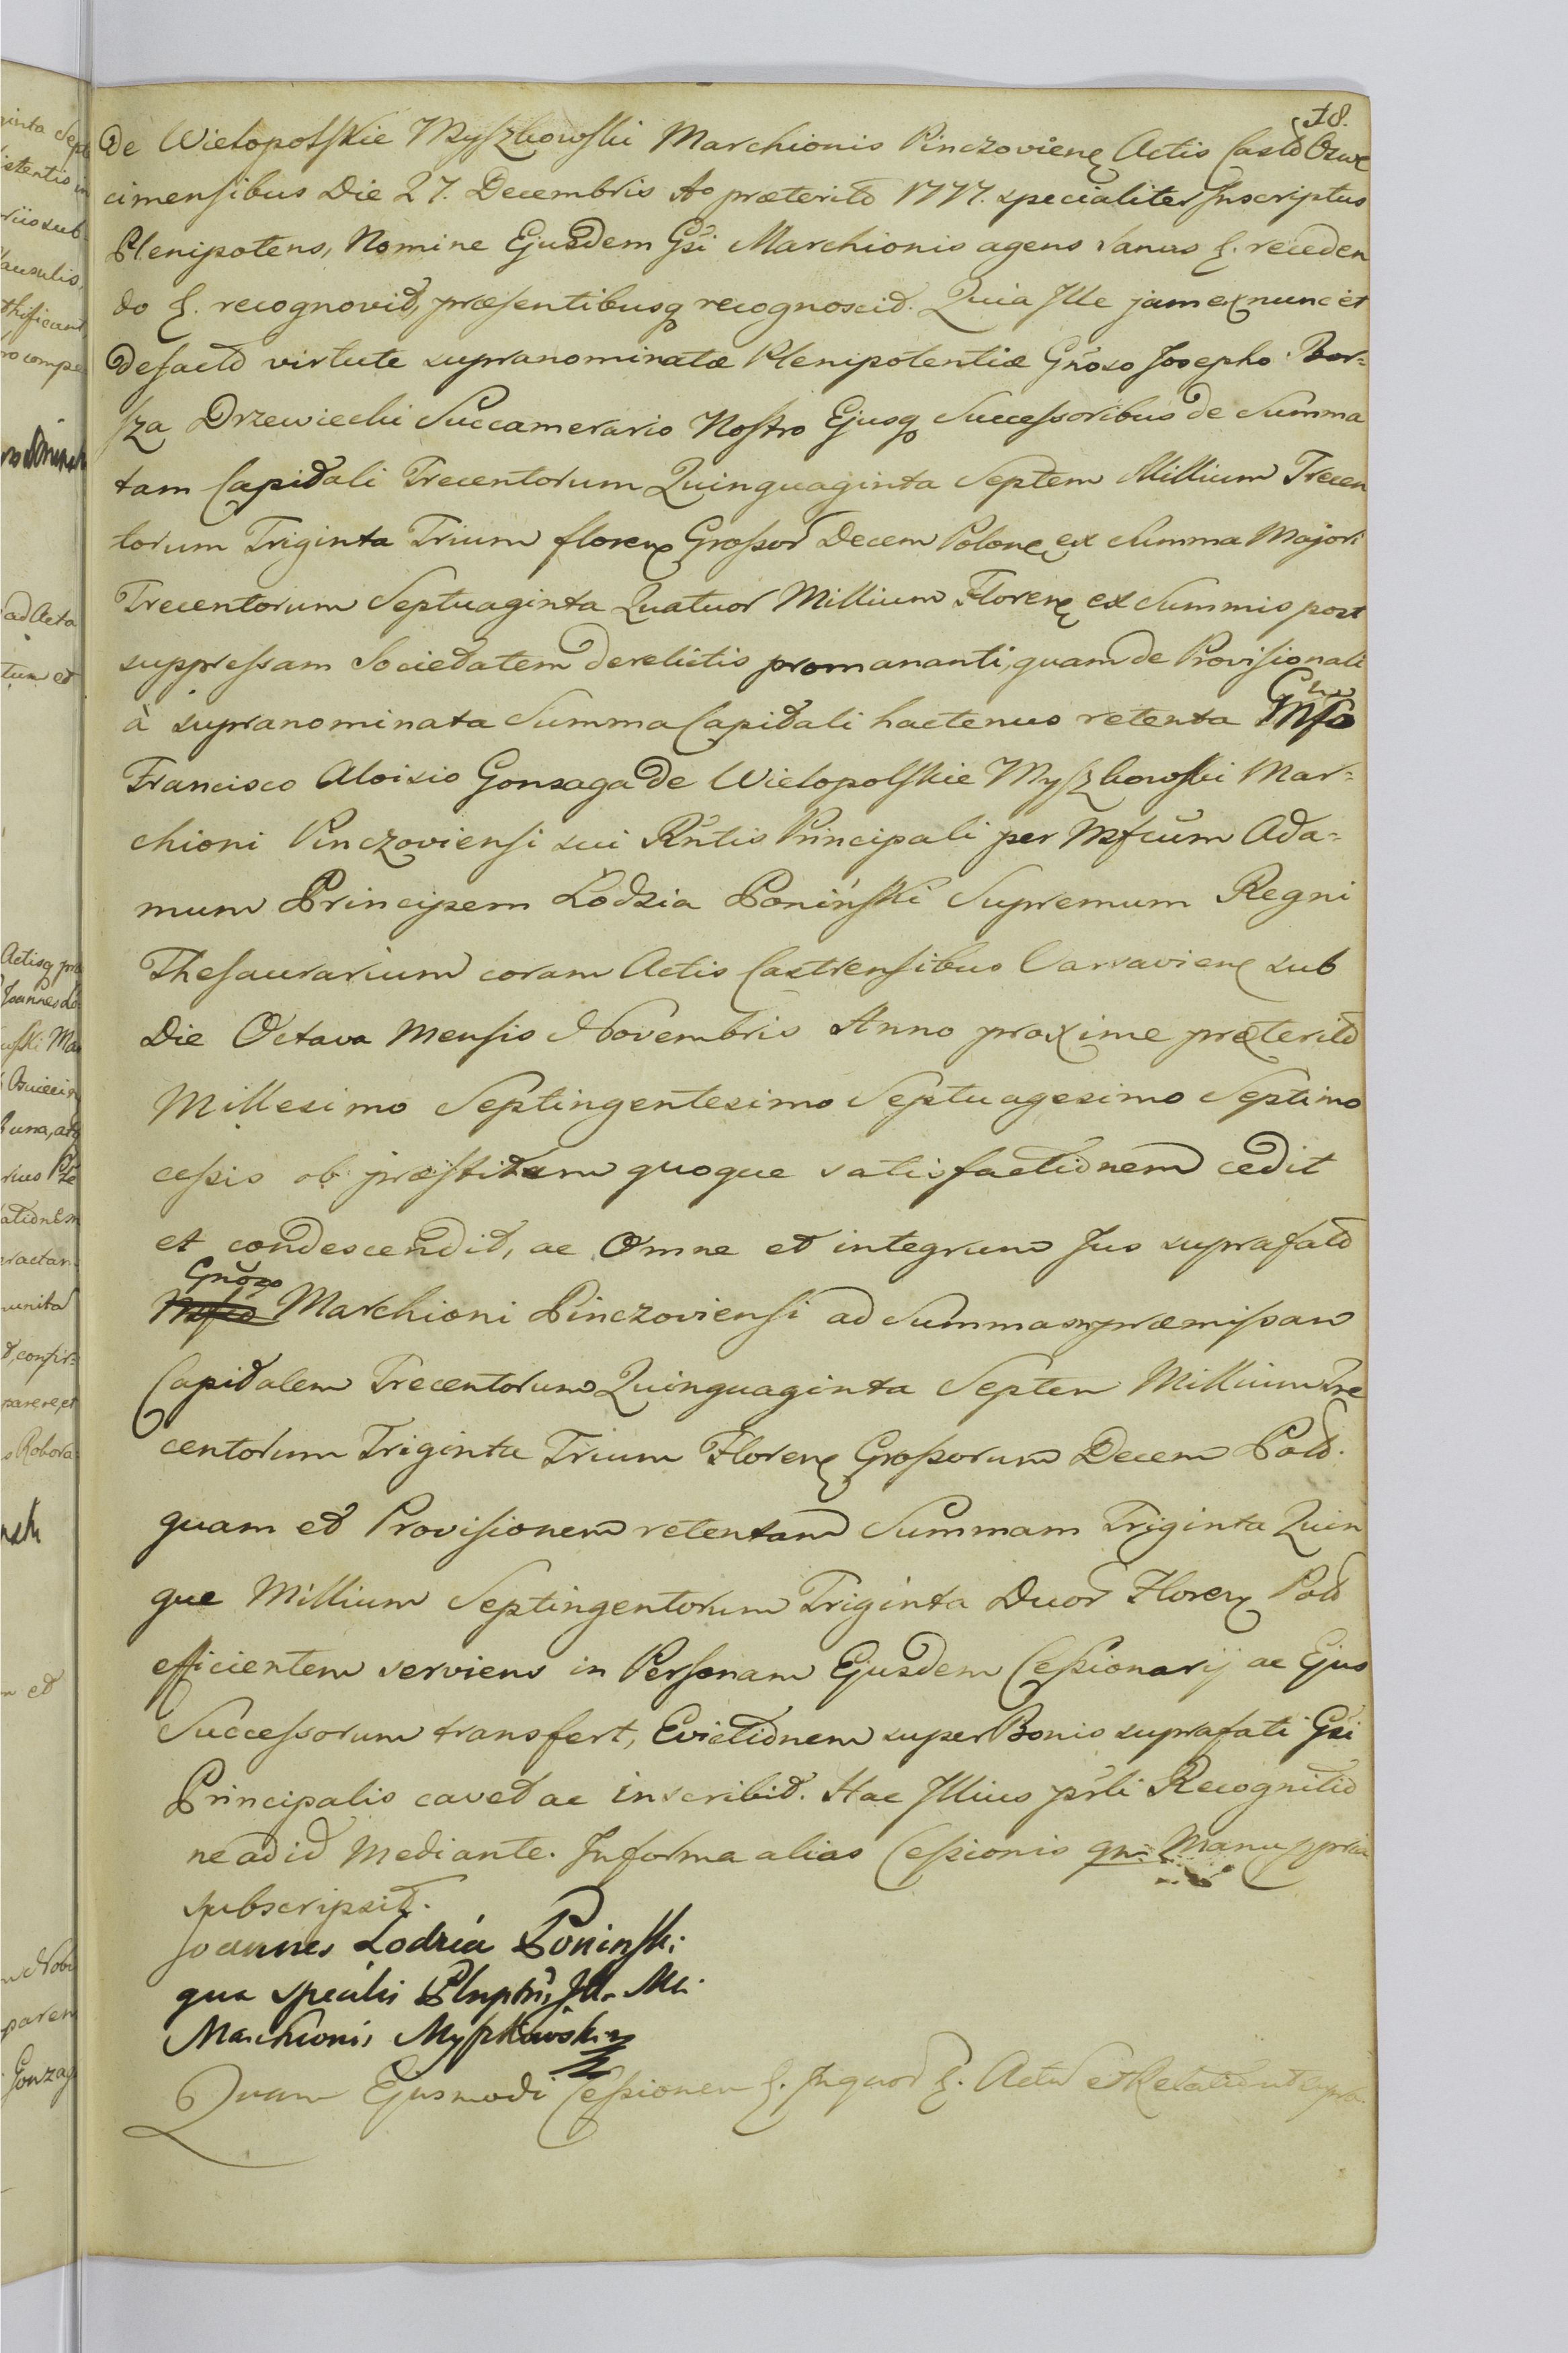 18.
De Wielopolskie Myszkowski Marchionis Pinczovien Actis Castr Oswe
cimensibus Die 27. Decembris Ao præterito 1777. specialiter Inscriptus
Plenipotens, Nomine Ejusdem Gsi Marchionis agens sanus &. receden
do &. recognovit, præsentibusq recognoscit. Quia Ille jam ex nunc et
de facto virtute supranominatæ Plenipotentiæ Gnoso Josepho Bor=
sza Drzewiecki Succamerario Nostro Ejusq Successoribus de Summa
tam Capitali Trecentorum Quinquaginta Septem Millium Trecen
torum Triginta Trium floren Grossor Decem Polon ex Summa Majori
Trecentorum Septuaginta Quatuor Millium Floren ex Summis post
suppressam Societatem derelictis promananti, quam de Provisionali
à supranominata Summa Capitali hactenus retenta
Francisco Aloisio Gonzaga de Wielopolskie Myszkowski Mar=
chioni Pinczoviensi sui Rntis Principali per Mfcum Ada=
mum Principem Łodzia Poniński Supremum Regni
Thesaurarium coram Actis Castrensibus Varsavien sub
Die Octava Mensis Novembris Anno proxime præterito
Millesimo Septingentesimo Septuagesimo Septimo
cessis ob præstitam quoque satisfactionem cedit
et condescendit, ac Omne et integrum Jus suprafato
Gnoso
Mfco Marchioni Pinczoviensi ad Summam præmissam
Capitalem Trecentorum Quinquaginta Septem Millium Tre
centorum Triginta Trium Floren Grossorum Decem Pol.
quam et Provisionem retentam Summam Triginta Quin
que Millium Septingentorum Triginta Duor Floren Pol
efficientem serviens in Personam Ejusdem Cessionarij ac Ejus
Successorum transfert, Evictionem super Bonis suprafati Gsi
Principalis cavet ac inscribit. Hac Illius prsti Recognitio
ne ad id Mediante. In forma alias Cessionis qu. Manu ppria
subscripsit.
Joannes Łodzia Poninski
qua specialis Plnptns Ill. M.
Marchionis Myszkowski
Quam Ejusmodi Cessionem &. Inquor &. Actu et Relatio ut supra.